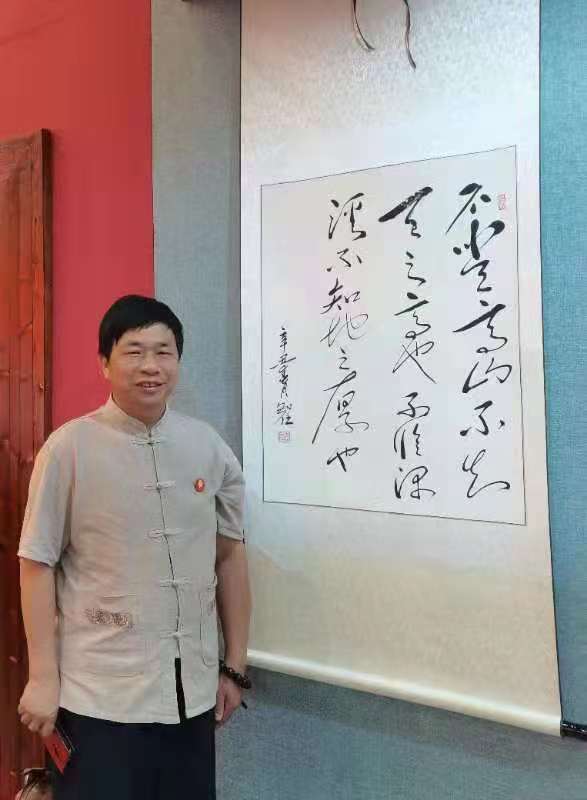 不登高山不知
天之高也不临深
溪不知地之厚也
辛丑夏月